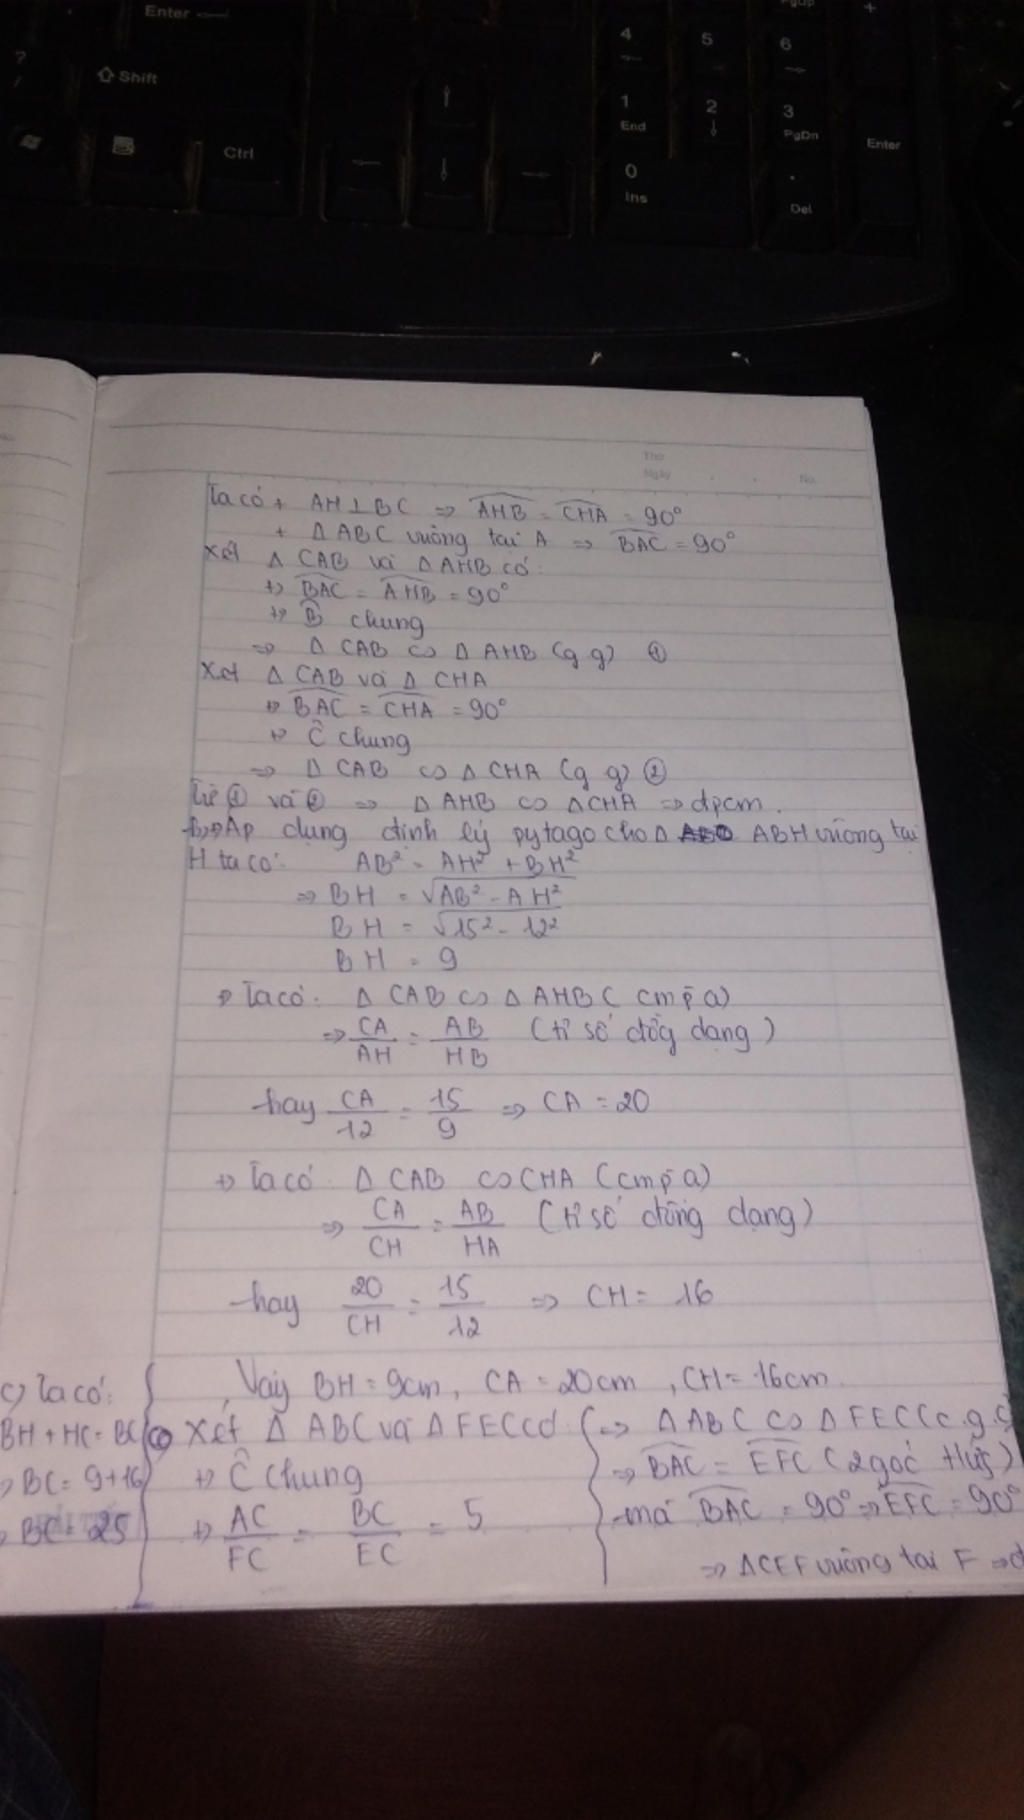 Enter
PgUp
+
?
/
Shift
4
5
6
1
End
2
3
PgDn
Ctrl
Enter
0
Ins
.
Del
Thứ
Ngày
No.
Ta có + AH ⊥ BC ⇒ AHB = CHA = 90°
+ Δ ABC vuông tại A ⇒ BAC = 90°
Xét Δ CAB và Δ AHB có:
+) BAC = AHB = 90°
+) B̂ chung
⇒ Δ CAB ∽ Δ AHB (g g) ①
Xét Δ CAB và Δ CHA
+) BAC = CHA = 90°
+) Ĉ chung
⇒ Δ CAB ∽ Δ CHA (g g) ②
Từ ① và ② ⇒ Δ AHB ∽ Δ CHA ⇒ đpcm.
b, Áp dụng định lý pytago cho Δ ABH vuông tại
H ta có: AB² = AH² + BH²
⇒ BH = √AB² - AH²
BH = √15² - 12²
BH = 9
+) Ta có: Δ CAB ∽ Δ AHB ( cmp a)
⇒ CA/AH = AB/HB (tỉ số đồg dạng)
hay CA/12 = 15/9 ⇒ CA = 20
+) Ta có: Δ CAB ∽ CHA (cmp a)
⇒ CA/CH = AB/HA (tỉ số đồng dạng)
hay 20/CH = 15/12 ⇒ CH = 16
Vậy BH = 9cm, CA = 20cm, CH = 16cm
c) Ta có:
BH + HC = BC
⇒ BC = 9+16
⇒ BC = 25
Xét Δ ABC và Δ FEC có:
+) Ĉ chung
+) AC/FC = BC/EC = 5
⇒ Δ ABC ∽ Δ FEC (c.g.c
⇒ BAC = EFC (2 góc tứ)
mà BAC = 90° ⇒ EFC = 90°
⇒ Δ CEF vuông tại F ⇒ đ